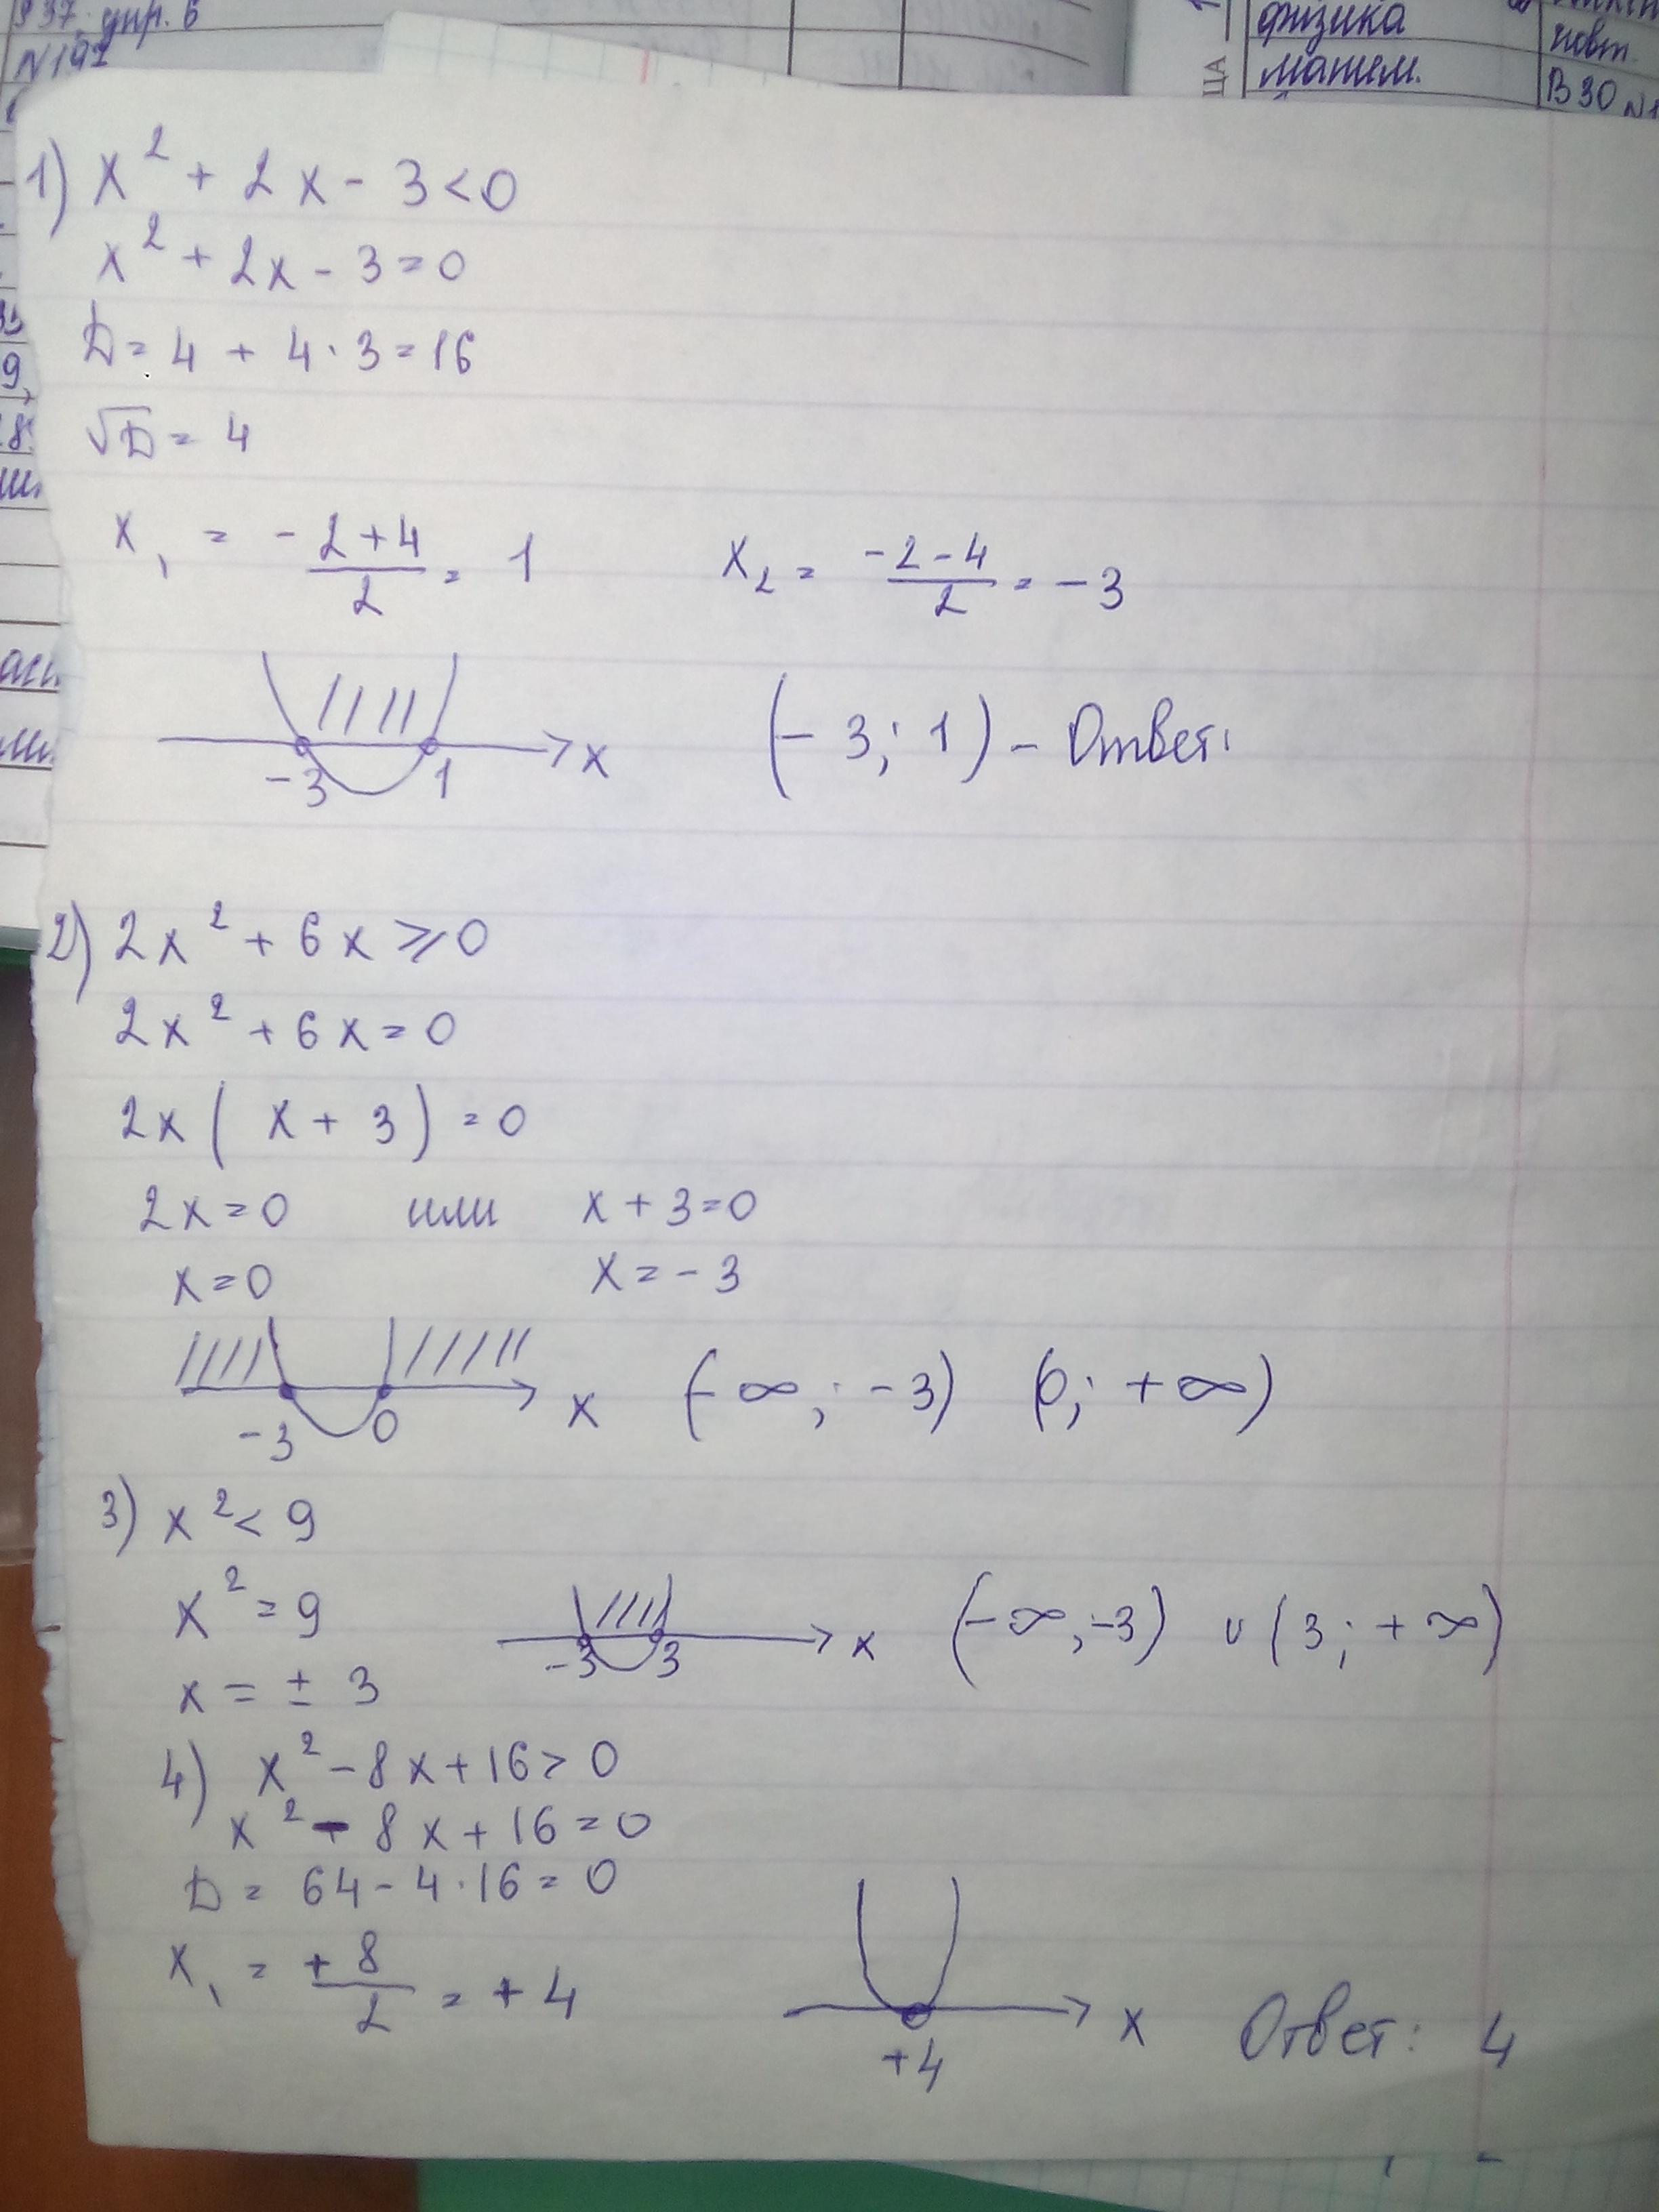 §37. упр. 6
N192
физика
матем.
повт.
В30 N1
ЦА
1) x² + 2x - 3 < 0
x² + 2x - 3 = 0
D = 4 + 4 · 3 = 16
√D = 4
x₁ = -2+4/2 = 1 x₂ = -2-4/2 = -3
-3 1 x (-3; 1) - Ответ:
2) 2x² + 6x ⩾ 0
2x² + 6x = 0
2x ( x + 3 ) = 0
2x = 0 или x + 3 = 0
x = 0 x = -3
-3 0 x (-∞; -3) (0; +∞)
3) x² < 9
x² = 9
-3 3 x (-∞; -3) ∪ (3; +∞)
x = ± 3
4) x² - 8x + 16 > 0
x² - 8x + 16 = 0
D = 64 - 4 · 16 = 0
x₁ = +8/2 = +4
+4 x Ответ: 4